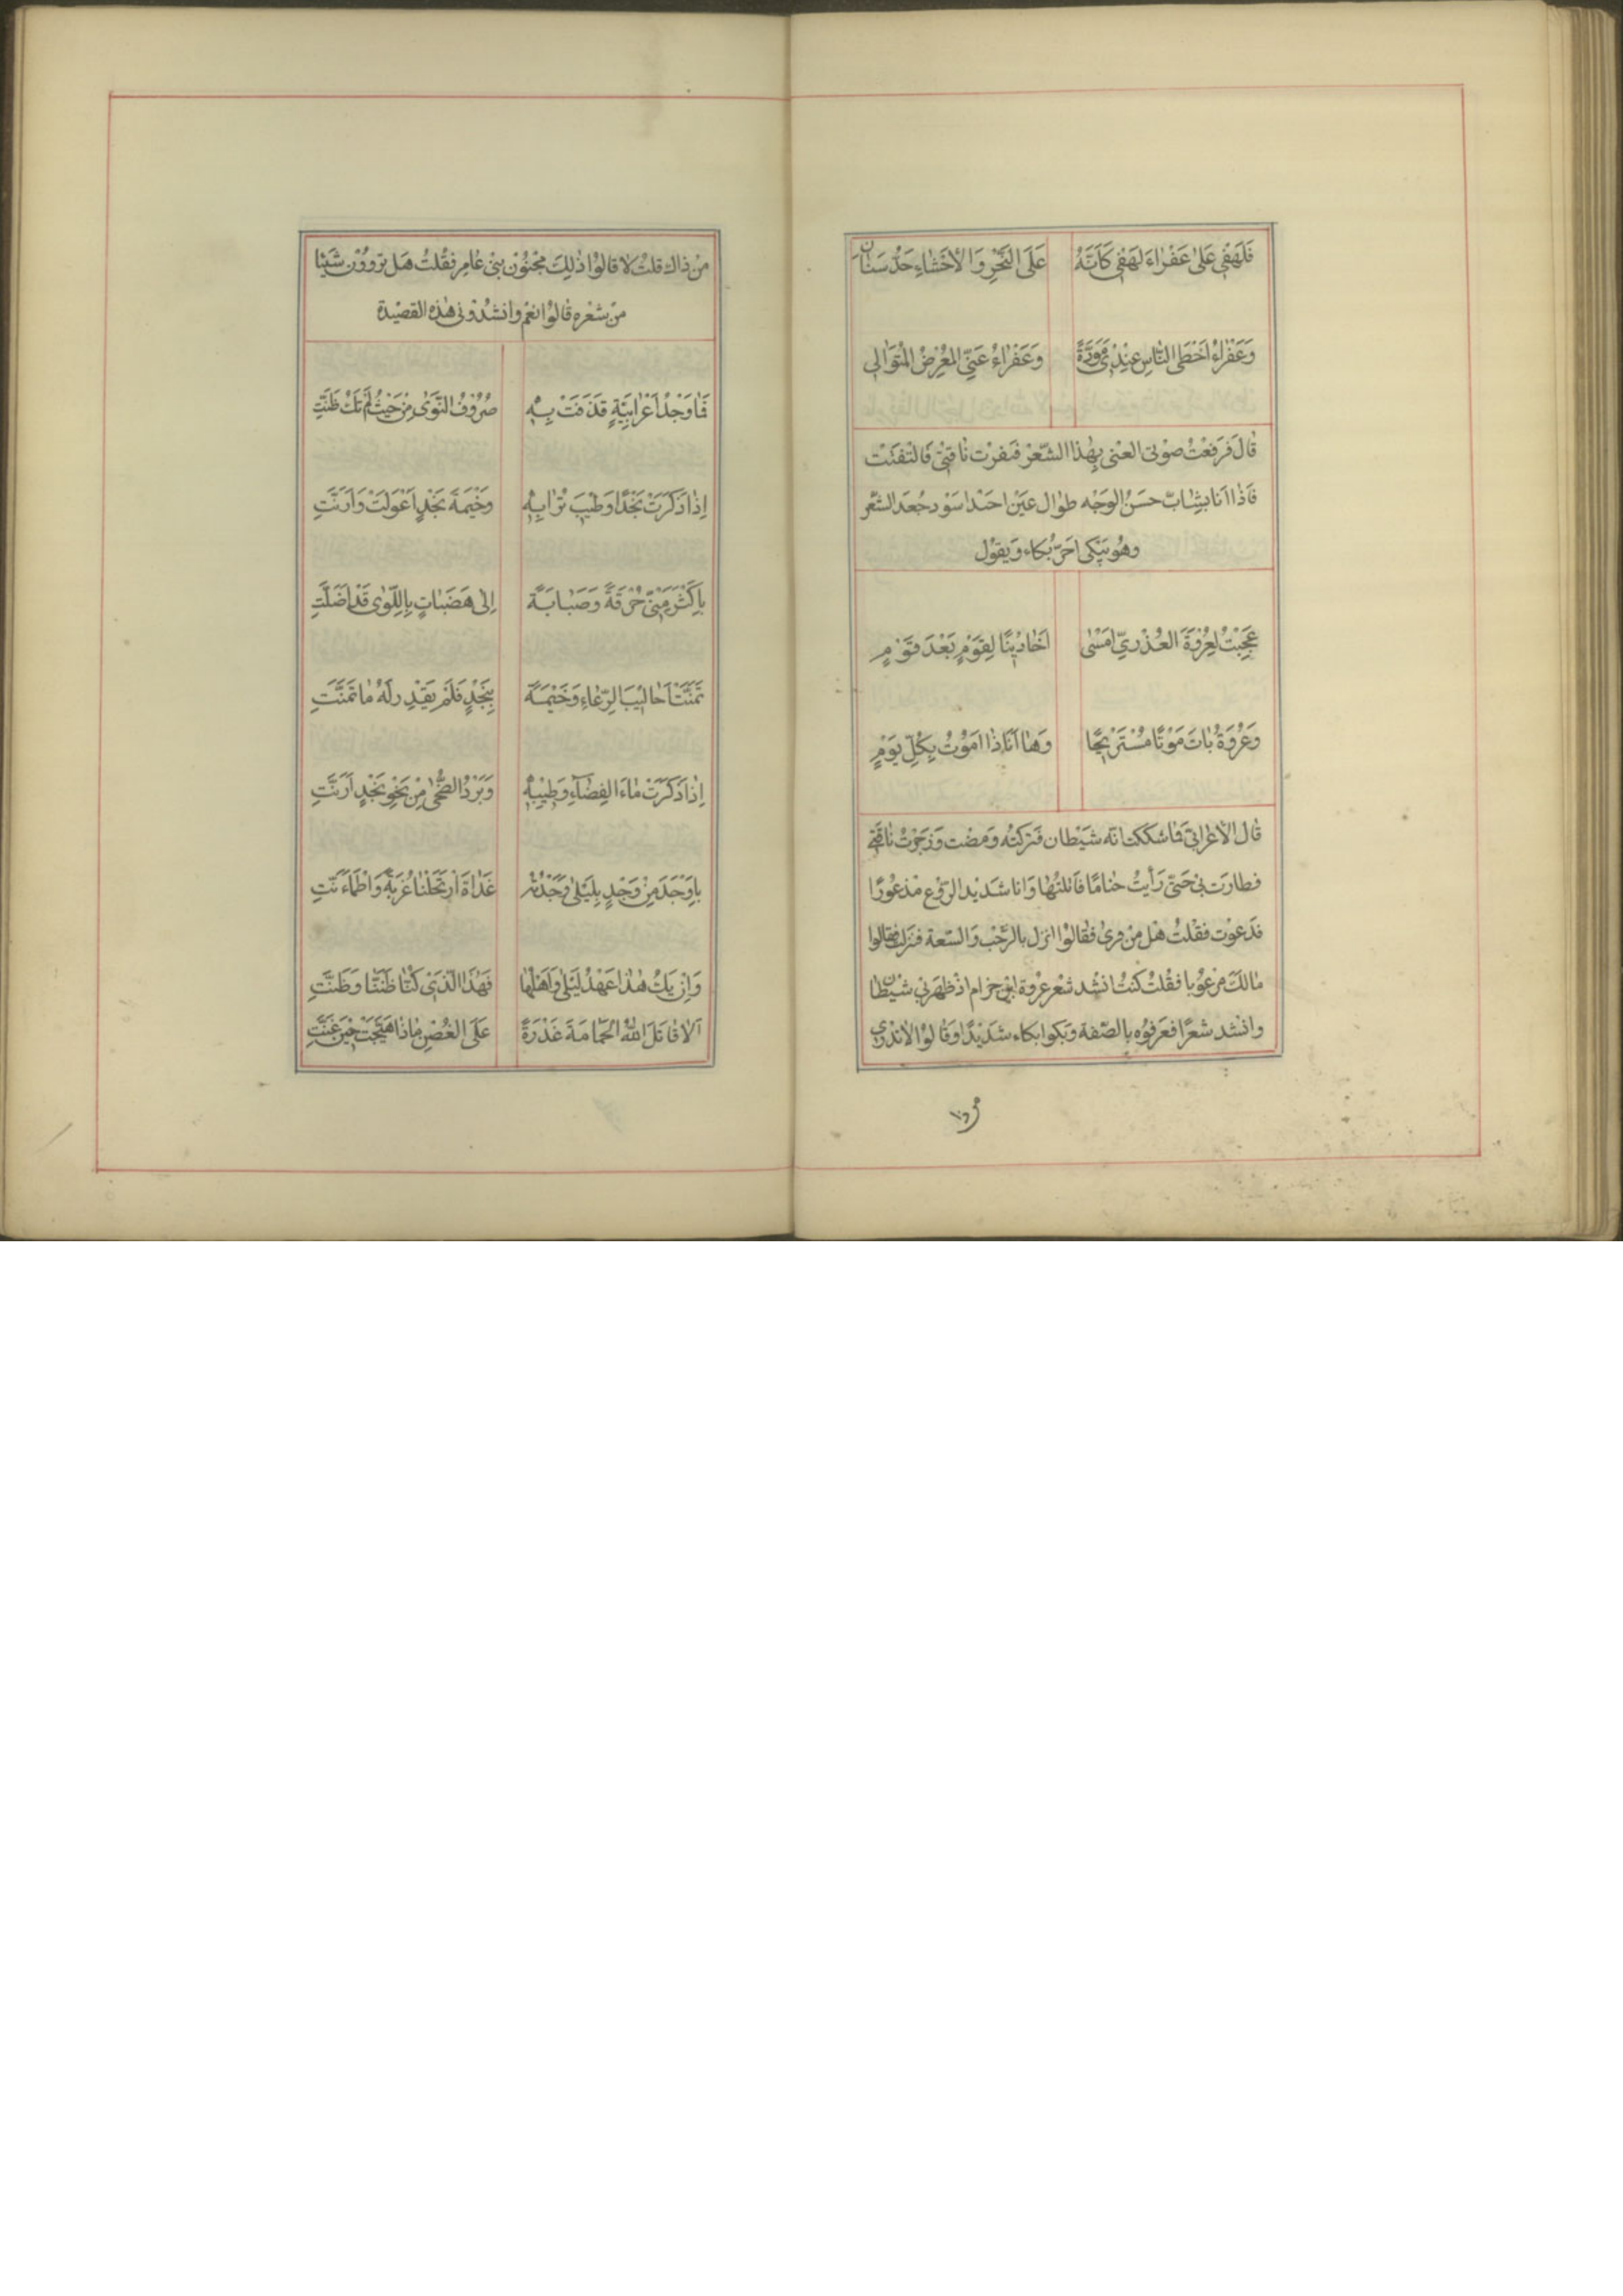 فَلَهَفْي عَلىٰ عَفْراءَ لَهَفْي كَاَنَّهُ عَلَى النَّحْرِ وَالأحْشاءِ حَدُّ سَنٰانِ
وَعَفْراءُ اَحْظَى النّاسِ عِنْدى مَوَدَّةً وَعَفْراءُ عَنِّى المُعْرِضُ المُتَوٰالِى
قٰالَ فَرَفَعْتُ صوْتى العْنى بِهٰذا الشّعْرْ فنفرْت نٰاقتىْ فالتْفتَتْ
فاذٰا اَنٰا بشٰابّ حسَنُ الوَجْه طوٰال عيَن احَنْدا سَوْد جُعَد الشَّعْر
وهُو يَبْكى احَرّ بُكاء وَيقوُل
عَجِبْتُ لِعُرْوَةَ العُذْرِيِّ اَمْسٰى اَحٰاديْثًا لِقَوْمٍ بَعْدَ قَوْمٍ
وَعُرْوَةُ بٰاتَ مَوْتًا مُسْتَرِيْحًا وَهٰا اَنَا ذٰا اَمُوْتُ بِكُلِّ يَوْمٍ
قٰال الأعْرابيّ فمٰا شككت انّه شيَطان فَتركتُه وَمضْت وَزجَرْتُ نٰاقَتى
فطارَت بى حَتّىٰ رَأيْتُ خيٰامًا فاَتلتُهٰا وَانا شدَيْد الرَّوْع مْذعُوْرًا
فدَعوْت فقْلتُ هْل مِنْ قرىٰ فقٰالوُا انزل بالرَّحْب وَالسّعة فنزَلت فقالوا
مٰالكَ مرْعُوْبا فقُلتُ كنتُ انشْد شعْر عرْوة ابْن حزام اذْ ظهَرنى شيْطٰان
وانشد شعرًا فعَرفوُه بالصّفة وَبكوا بكاء شَديْدًا وَقٰالوُا الاتدْرى
مَنْ
مَنْ ذاك قلتُ لا قالوُا ذٰلِكَ مَجْنوُنْ بنىْ عٰامِرٍ فقُلتُ هَل ترووُنْ شَيْئا
مِنْ شعْره قٰالوُا نعَمْ وانشدُوْنى هٰذهِ القصْيدة
فَمٰا وَجْدُ اَعْرابِيَّةٍ قَذَفَتْ بِهٖا صُرُوْفُ النَّوٰى مِنْ حَيْثُ لَمْ تَكْ ظَنَّتِ
اِذٰا ذَكَرَتْ نَجْدًا وَطيْبَ تُرٰابِهٖ وَخَيْمَةَ نَجْدٍ اَعْوَلَتْ وَاَرَنَّتِ
بِاَكْثَرَ مِنّىْ حُرْقَةً وَصَبٰابَةً اِلىٰ هَضَبٰاتٍ بِاللِّوٰى قَدْ اَضَلَّتِ
تَمَنَّتْ اَحٰاليْبَ الرِّعٰاءِ وَخَيْمَةً بِنَجْدٍ فَلَمْ يَقْدِرْ لَهٰا مٰا تَمَنَّتِ
اِذٰا ذَكَرَتْ مٰاءَ الفِضٰاءِ وَطِيْبِهٖ وَبَرْدُ الضُّحىٰ مِنْ نَحْوِ نَجْدٍ اَرَنَّتِ
بِاَوْجَدَ مِنْ وَجْدٍ بِلَيْلىٰ وَجَدْتُهُ غَدٰاةَ اَرْتَحَلْنٰا غُرْبَةً وَاطْمَاَءَنَّتِ
وَاِنْ يَكُ هٰذا عَهْدُ لَيْلىٰ وَاَهْلُهٰا فَهٰذَا الَّذىْ كُنّٰا ظَنَنّٰا وَظَنَّتِ
اَلاٰ قٰاتَلَ اللّٰهُ الحَمٰامَةَ غَدْوَةً عَلَى الغُصْنِ مٰاذٰا هَيَّجَتْ حيْنَ غَنَّتِ